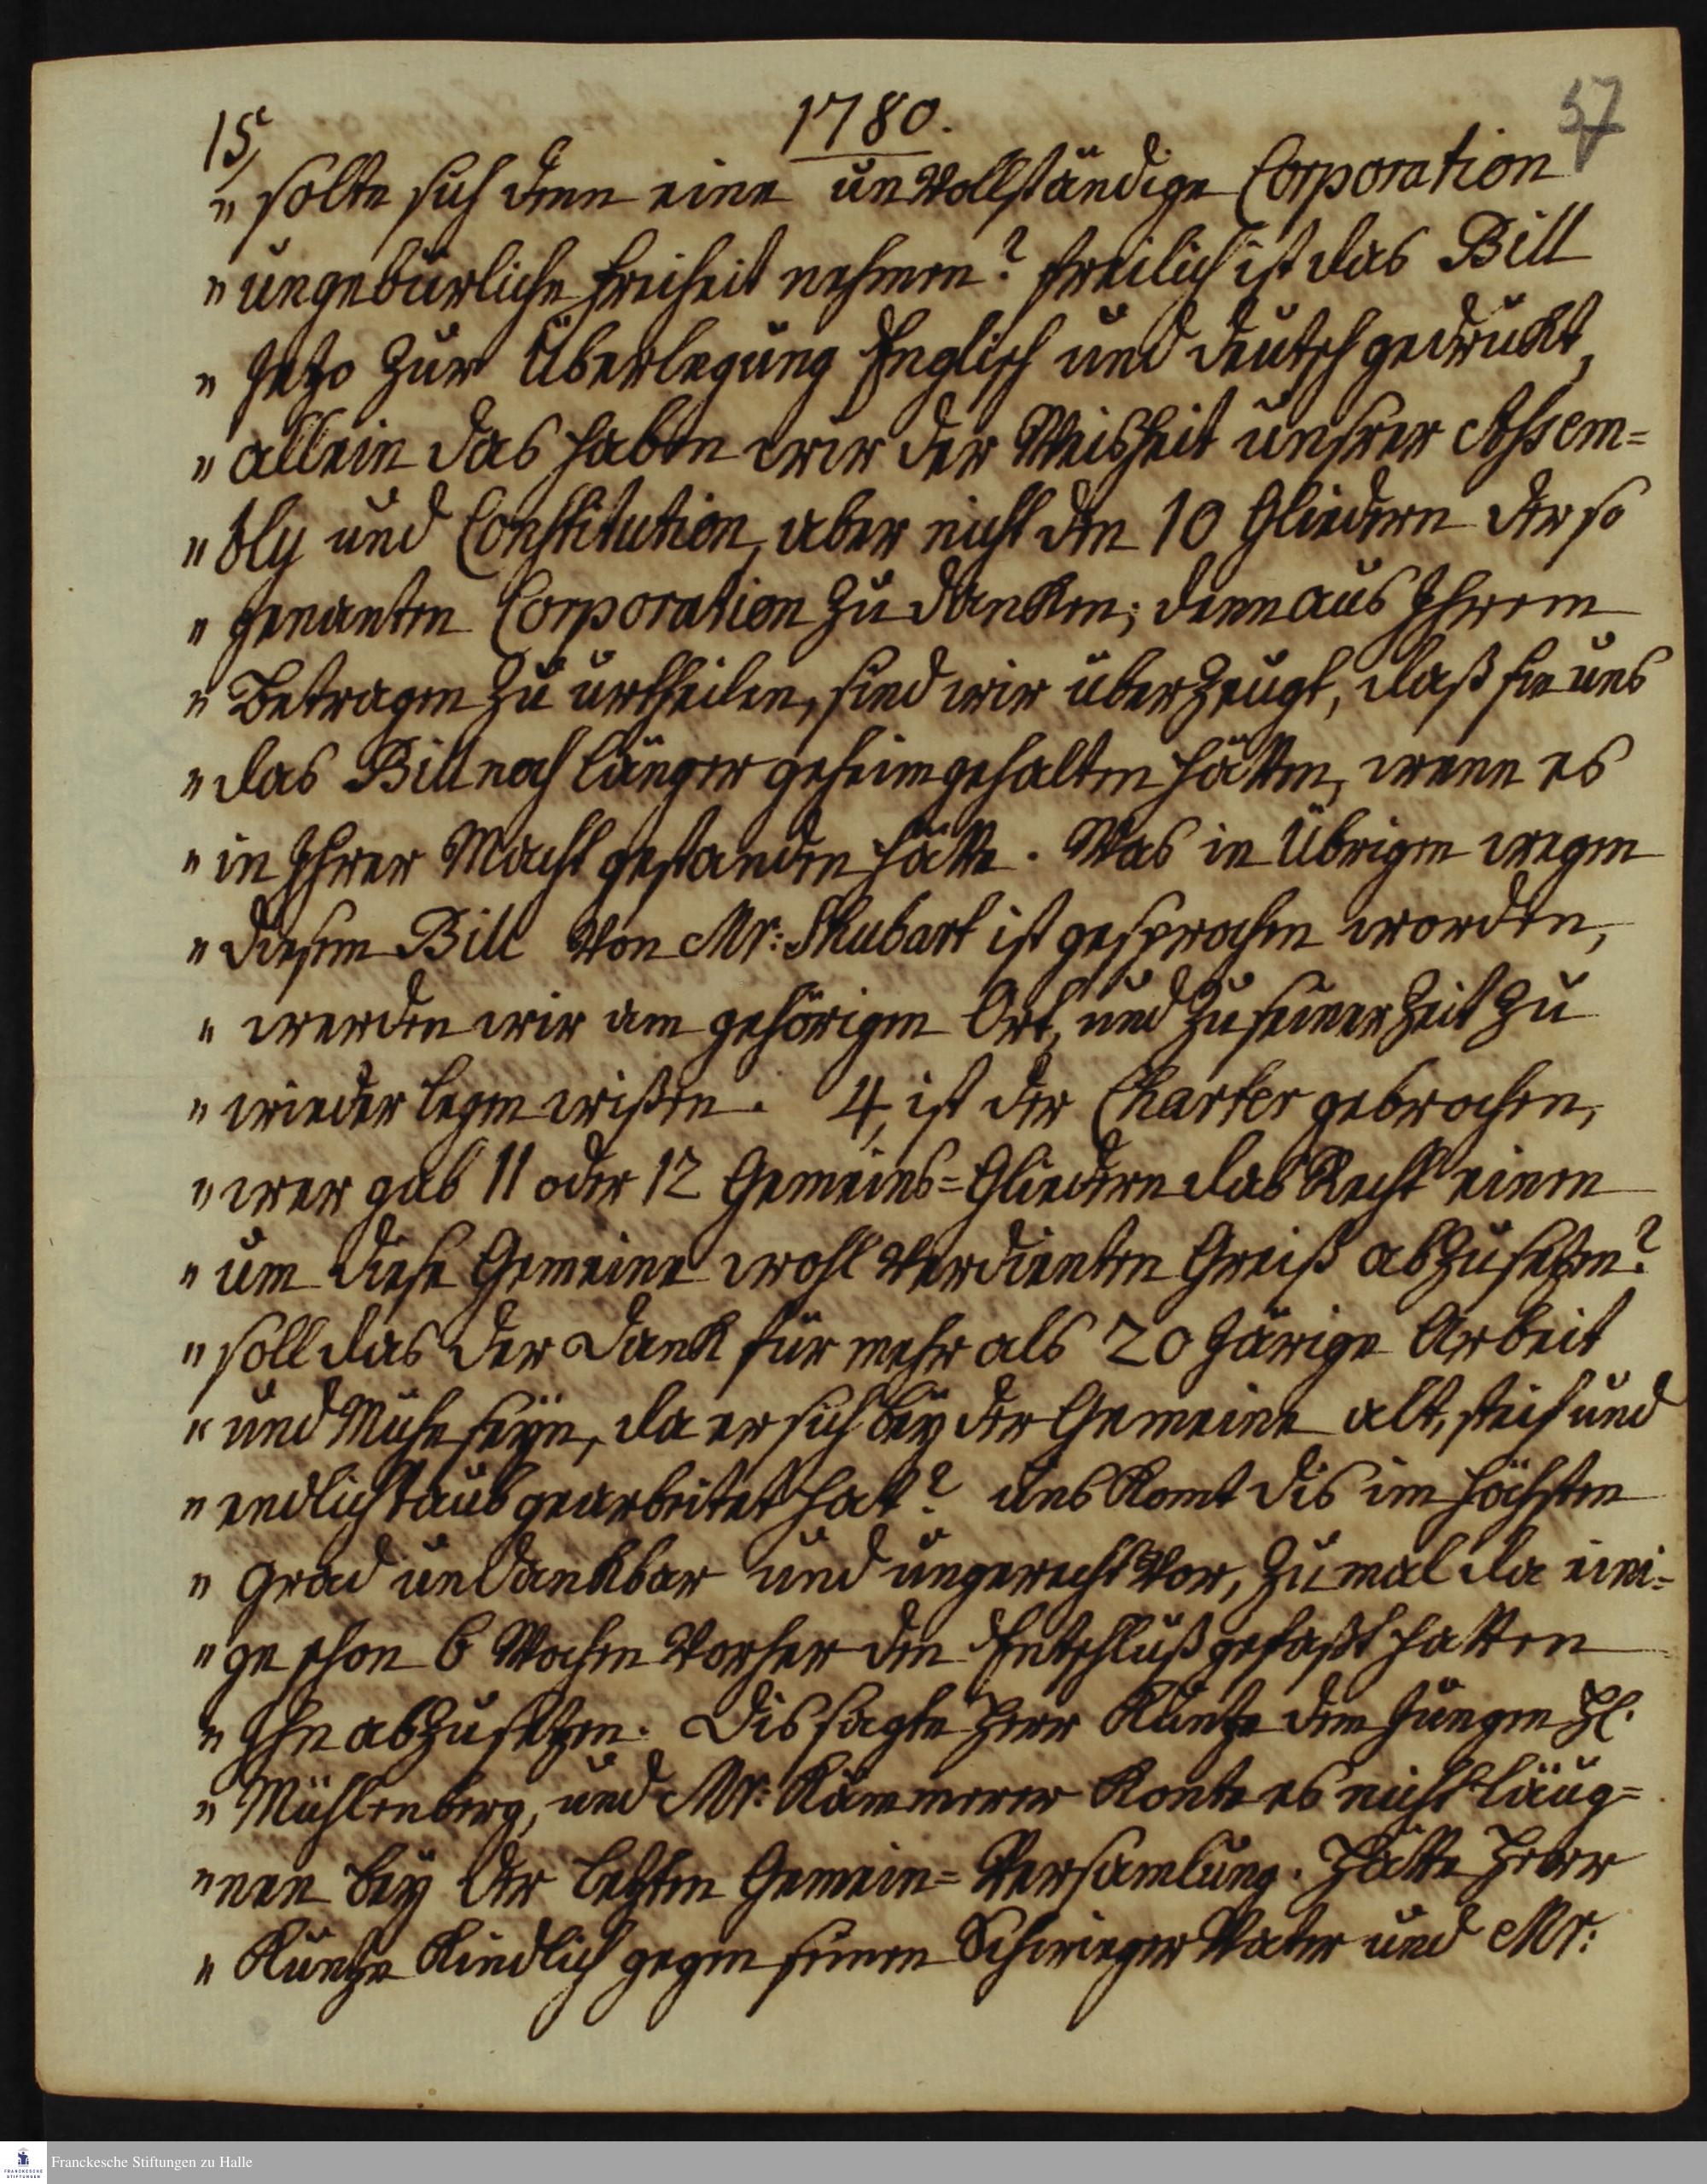 57
15,
1780.
" solte sich denn eine unvollständige Corporation
" ungebürliche Freiheit nehmen? freilich ist das Bill
" jezo zur Überlegung Englisch und deutsch gedrukt,
" allein das haben wir der Weisheit unsrer Assem=
" bly und Constitution, aber nicht den 10 Gliedern der so
" genanten Corporation zu danken; denn aus Ihrem
" Betragen zu urtheilen, sind wir überzeugt, daß sie uns
" das Bill noch länger geheim gehalten hätten, wenn es
" in Ihrer Macht gestanden hätte. Was im Übrigen wegen
" diesem Bill von Mr: Shubart ist gesprochen worden,
" werden wir am gehörigen Ort, und zu seiner Zeit zu
" wieder legen wißen. 4, ist der Charter gebrochen,
" wer gab 11 oder 12 Gemeins=Gliedern das Recht einen
" um diese Gemeine wohl verdienten Greiß abzusetzen?
" soll das der Dank für mehr als 20 järige Arbeit
" und Mühe seyn, da er sich bey der Gemeine alt, steif und
" endlich taub gearbeitet hat? uns komt dis im höchsten
" grad undankbar und ungerecht vor, zumal da eini=
" ge schon 6 Wochen vorher den Entschluß gefaßt hatten
" Ihn abzusetzen. Dis sagte Herr Kunze dem jungen H.
" Mühlenberg, und Mr: Kämmerer konte es nicht läug=
" nen bey der letzten Gemein=Versamlung. Hätte Herr
" Kunze kindlich gegen seinen Schwieger Vater und Mr:
Franckesche Stiftungen zu Halle
FRANCKESCHE
STIFTUNGEN